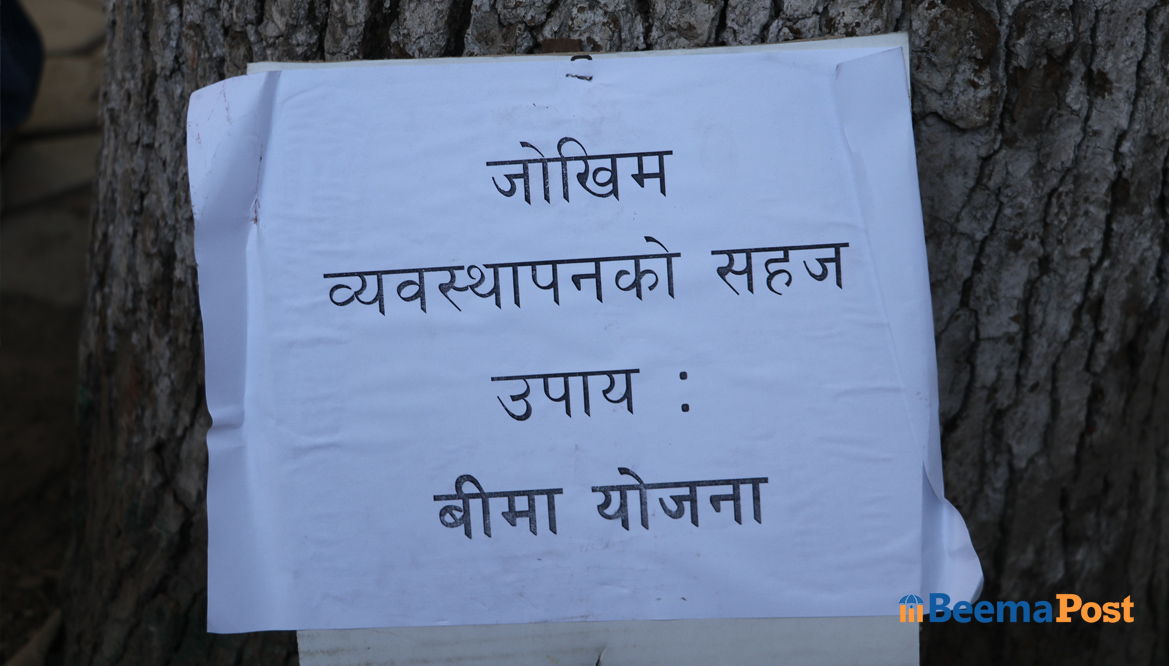 जोखिम
व्यवस्थापनको सहज
उपाय :
बीमा योजना
BeemaPost